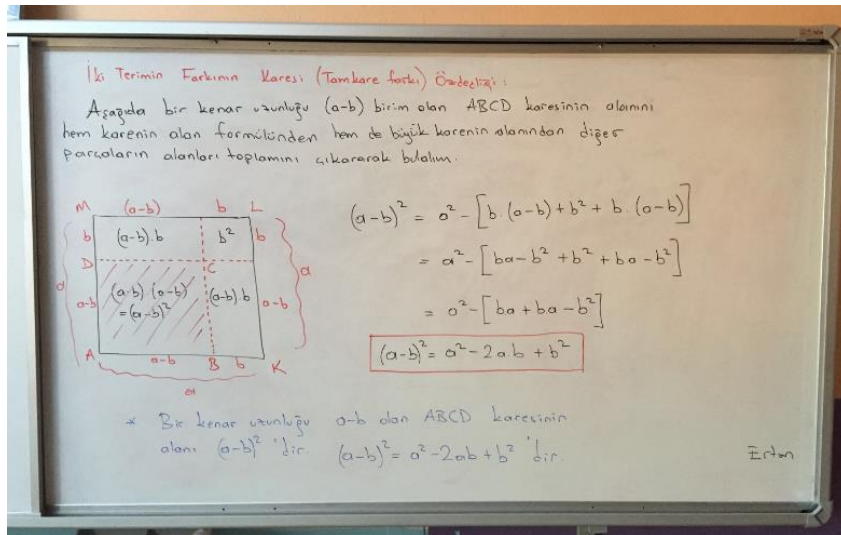 İki Terimin Farkının Karesi (Tamkare farkı) Özdeşliği:
Aşağıda bir kenar uzunluğu (a-b) birim olan ABCD karesinin alanını
hem karenin alan formülünden hem de büyük karenin alanından diğer
parçaların alanları toplamını çıkararak bulalım.
M (a-b) b L
b (a-b).b b² b
D C
a a
a-b (a-b).(a-b) (a-b).b a-b
=(a-b)²
A a-b B b K
a
(a-b)² = a² - [b.(a-b) + b² + b.(a-b)]
= a² - [ba - b² + b² + ba - b²]
= a² - [ba + ba - b²]
(a-b)² = a² - 2a.b + b²
* Bir kenar uzunluğu a-b olan ABCD karesinin
alanı (a-b)² 'dir. (a-b)² = a² - 2ab + b² 'dir.
Ertan